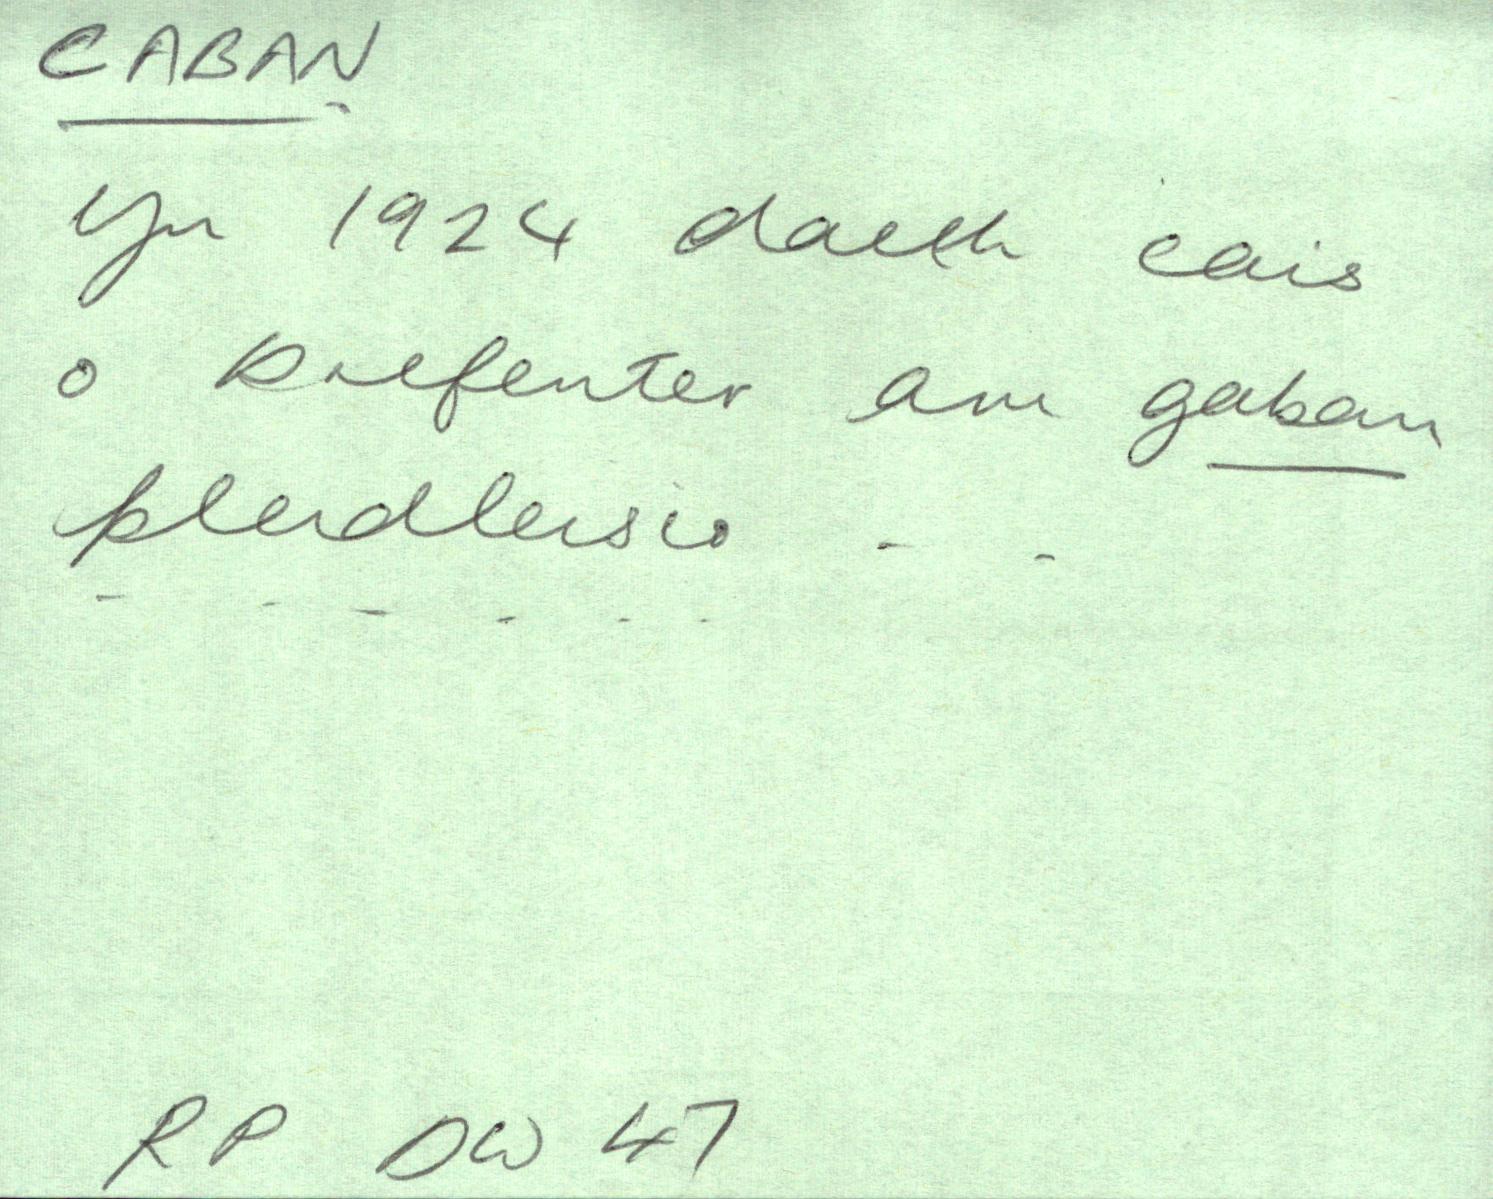 CABAN
Yn 1924 daeth cais
o Drefenter am gaban
pleidleisio - -
- - - - - -
RP DW 47